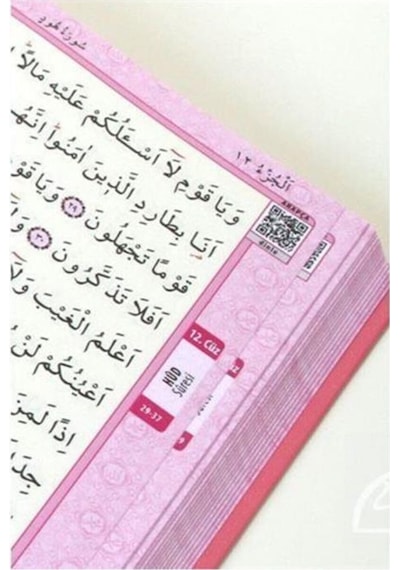 سُورَةُ هُودٍ
اَلْجُزْءُ ١٢
وَيَا قَوْمِ لَٓا اَسْـَٔلُكُمْ عَلَيْهِ مَالًاۜ
اَنَا۬ بِطَارِدِ الَّذ۪ينَ اٰمَنُواۜ اِنَّهُ
قَوْمًا تَجْهَلُونَ ﴿٢٩﴾ وَيَا قَوْ
اَفَلَا تَذَكَّرُونَ ﴿٣٠﴾ وَ
اَعْلَمُ الْغَيْبَ وَلَٓا
اَعْيُنُكُمْ لَنْ
اِذًا لَمِنَ
جِدَا
ARAPÇA
dinle
12. Cüz
HÛD
Sûresi
29-37